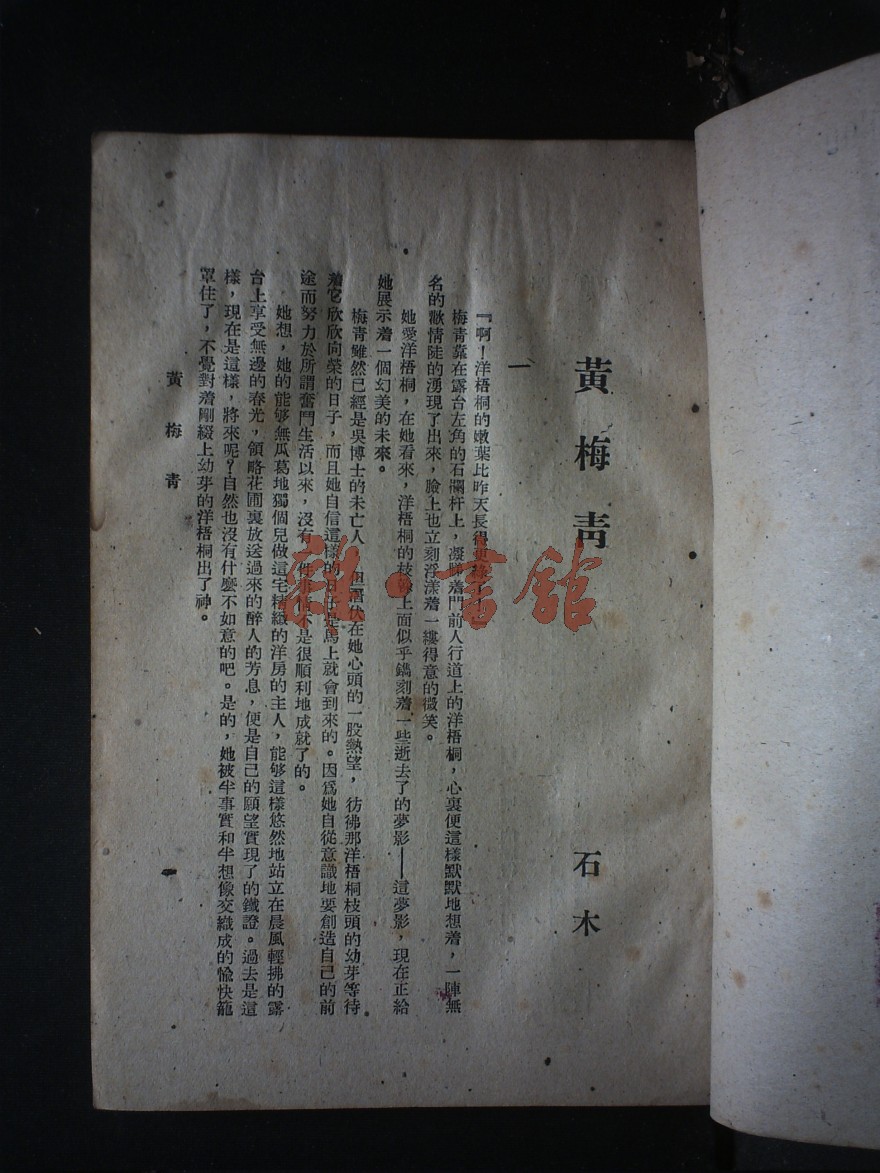 黃梅靑
石木
一
『啊！洋梧桐的嫩葉比昨天長得更綠了！
梅青靠在露台左角的石闌杆上，凝睇着門前人行道上的洋梧桐，心裏便這樣默默地想着，一陣無
名的激情陡的湧現了出來，臉上也立刻浮漾着一縷得意的微笑。
她愛洋梧桐，在她看來，洋梧桐的枝幹上面似乎鐫刻着一些逝去了的夢影——這夢影，現在正給
她展示着一個幻美的未來。
梅青雖然已經是吳博士的未亡人，但潛伏在她心頭的一股熱望，彷彿那洋梧桐枝頭的幼芽等待
着它欣欣向榮的日子，而且她自信這樣的日子是馬上就會到來的。因爲她自從意識地要創造自己的前
途而努力於所謂奮鬥生活以來，沒有一件事情不是很順利地成就了的。
她想，她的能够無瓜葛地獨個兒做這宅精緻的洋房的主人，能够這樣悠然地站立在晨風輕拂的露
台上享受無邊的春光，領略花圃裏放送過來的醉人的芳息，便是自己的願望實現了的鐵證。過去是這
樣，現在是這樣，將來呢？自然也沒有什麼不如意的吧。是的，她被半事實和半想像交織成的愉快籠
罩住了，不覺對着剛綴上幼芽的洋梧桐出了神。
黃梅青
雜·書館